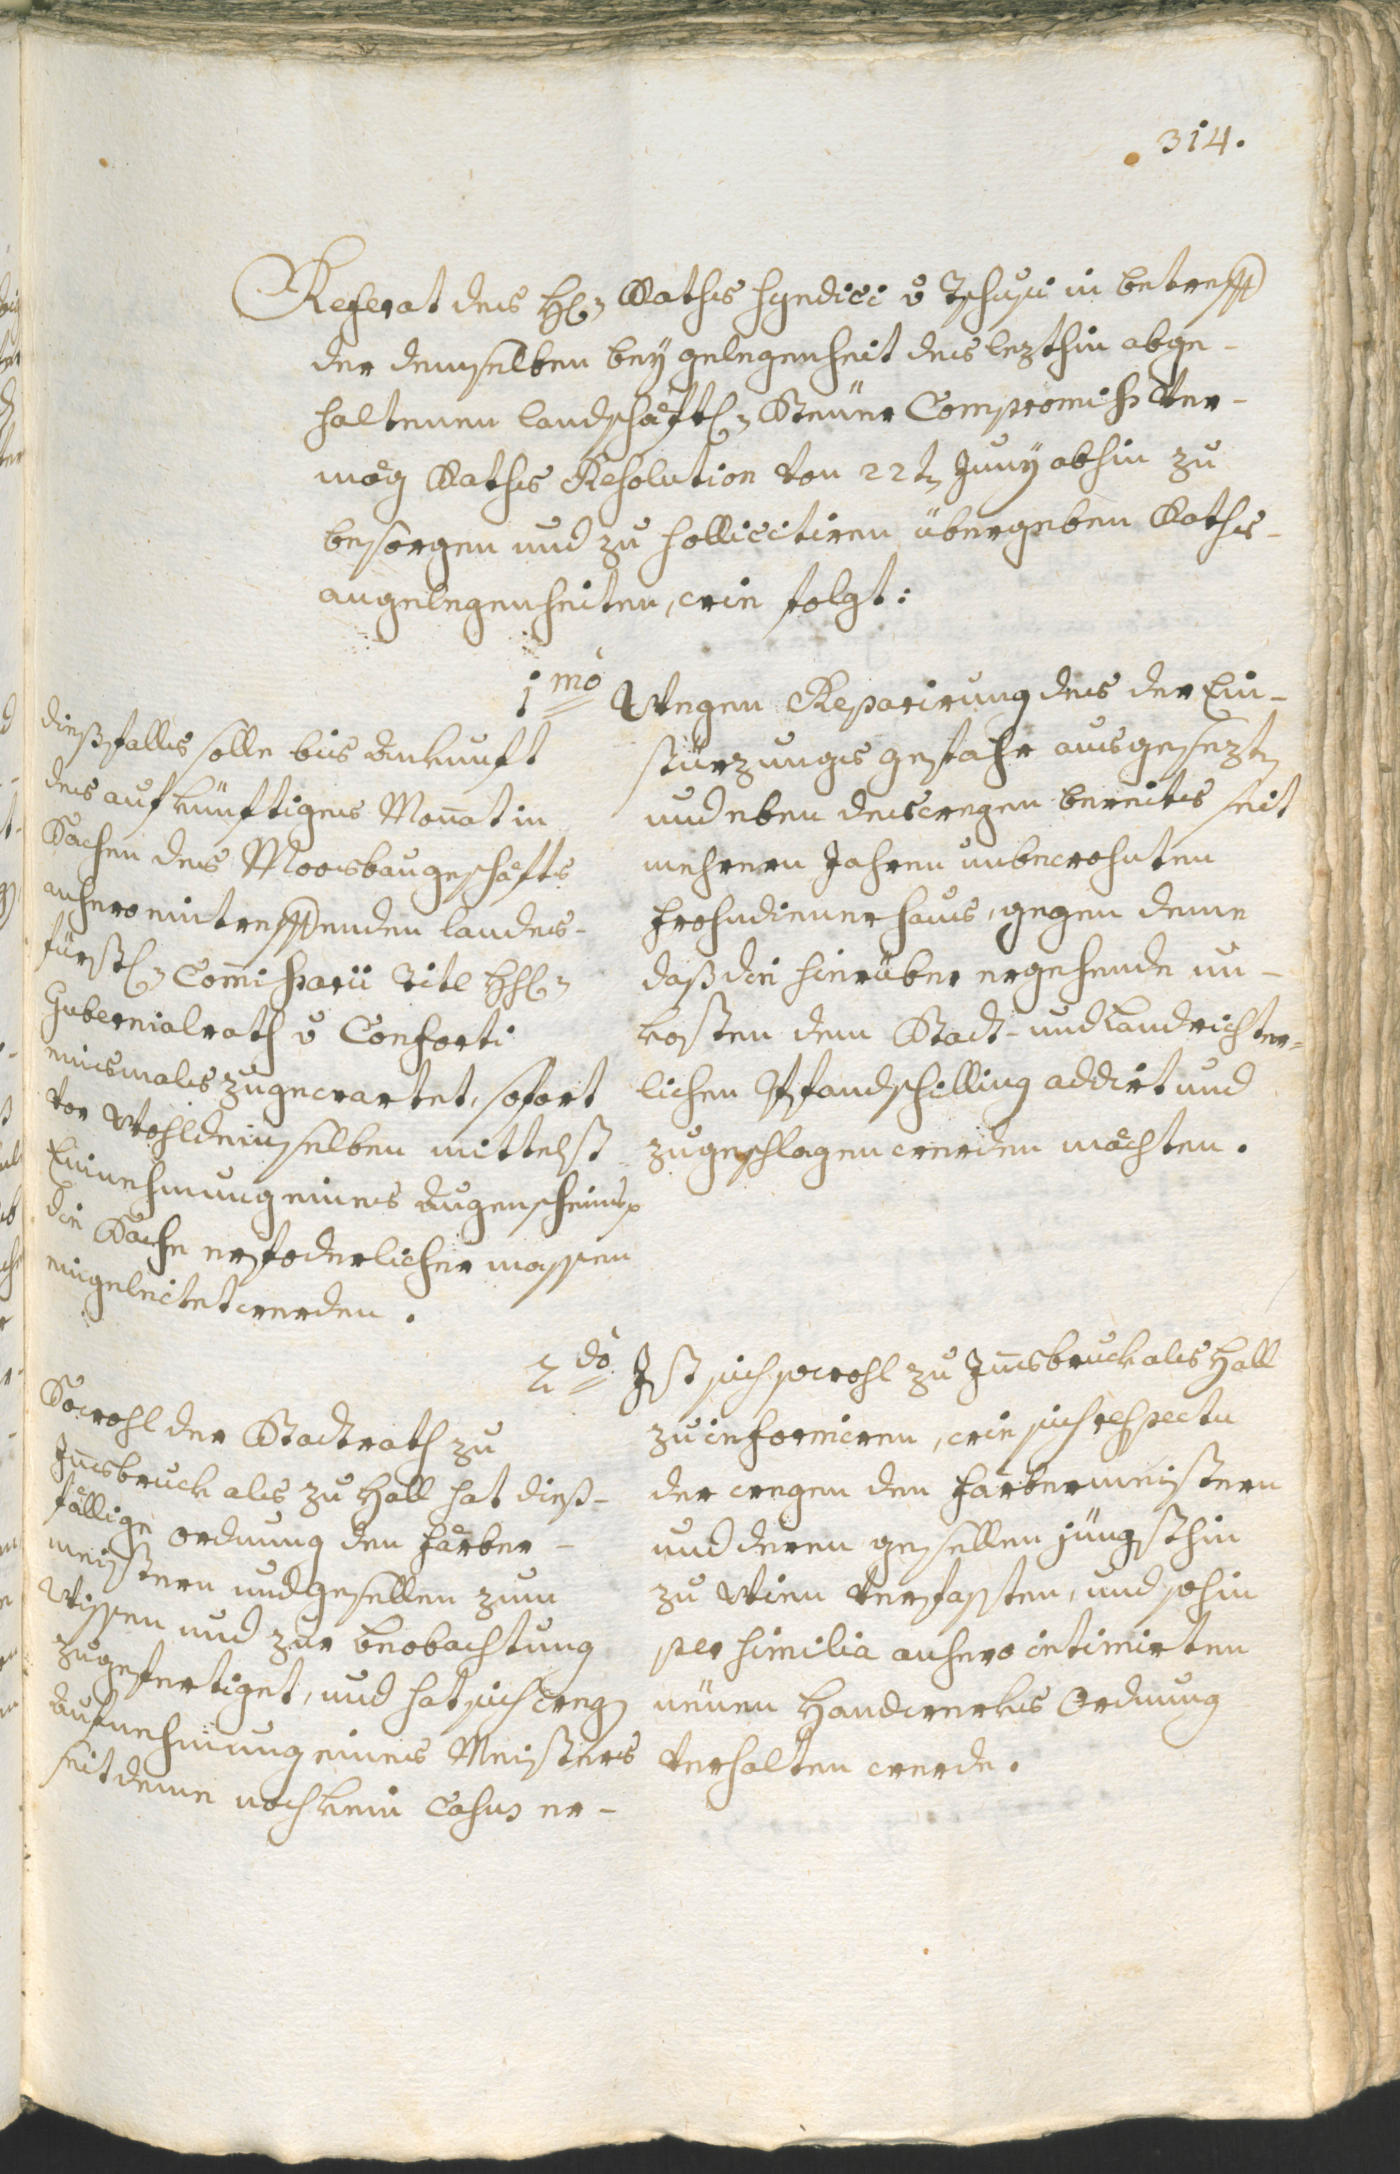 314.
Referat des H: Raths Syndici v Tschusi in betreff
der demselben bey gelegenheit des lezthin abge-
haltenen landschäftl: Steüer Compromiß ver-
mög Raths Resolution von 22tn Juny abhin zu
besorgen und zu sollicitiren übergeben Raths-
angelegenheiten, wie folgt:
1mo Wegen Reparirung des der Ein-
stürzungs gefahr ausgesezten
und eben deswegen bereits seit
mehrern Jahren unbewohnten
Frohndienerhaus, gegen deme
daß die hierüber ergehende un-
kosten dem Stadt- und Landrichter-
lichen Pfandschilling addirt und
zugeschlagen werden möchten.
dießfalls solle bis Ankunft
des auf künftigen Monat in
Sachen des Moosbaugeschäfts
anhero eintreffenden landes-
fürstl: Commissarii Titl H:
Gubernialrath v Conforti
einsmals zugewartet, sofort
vor Wohldemselben mittelst
Einnehmung eines Augenscheins
die Sache erfoderlicher massen
eingeleitet werden.
2do Ist sich sowohl zu Innsbruck als Hall
zu informiren, wie sich respectu
der wegen den Färbermeistern
und deren gesellen jüngsthin
zu Wien verfassten, und sohin
per similia anhero intimirten
neüen Handwerks Ordnung
verhalten werde.
Sowohl der Stadtrath zu
Innsbruck als zu Hall hat dieß-
fällige ordnung den Färber-
meistern und gesellen zum
Wissen und zur beobachtung
zugefertiget, und hat sich wegen
Aufnehmung eines Meisters
seit deme noch kein Casus er-